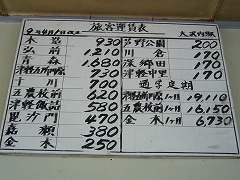 旅客運賃表
9年4月1日改正 大沢内駅
木造 930
弘前 1,210
青森 1,680
津軽五所川原 730
五農校前 620
津軽飯詰 580
毘沙門 470
嘉瀬 380
金木 250
芦野公園 200
川倉 170
深郷田 170
津軽中里 170
通学定期
津軽五所川原 1ヶ月 19,110
五農校前 1ヶ月 16,150
金木 1ヶ月 6,730